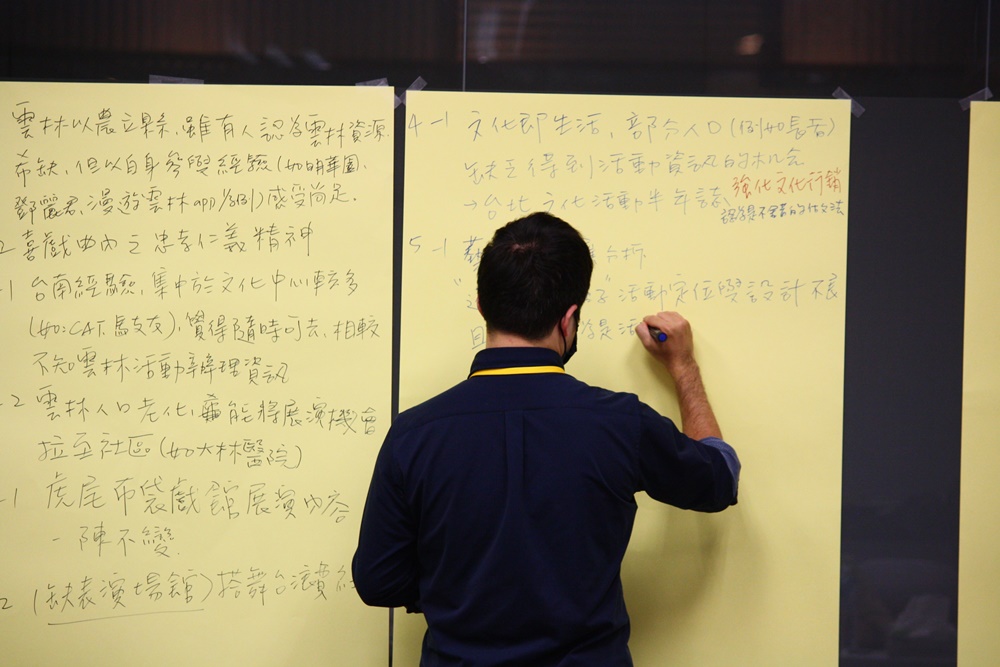 雲林以農立縣,雖有人認為雲林資源
希缺,但以自身參與經驗(如明華園、
鄧麗君、漫遊雲林app/分別)感受尚足.
2 喜戲曲內之忠孝仁義精神
-1 台南經驗,集中於文化中心較多
(如:CAT.馬友友),覺得隨時可去,相較
不知雲林活動辦理資訊
-2 雲林人口老化,為能將展演機會
拉至社區(如大林醫院)
-1 虎尾布袋戲館展演內容
- 陳不變
2 (缺表演場館)搭舞台演
4-1 文化即生活,部分人口(例如長者)
缺乏得到活動資訊的机会
→台北文化活動半年誌
強化文化行銷
5-1 藝 分析
活動定位與設計不良
且 是活